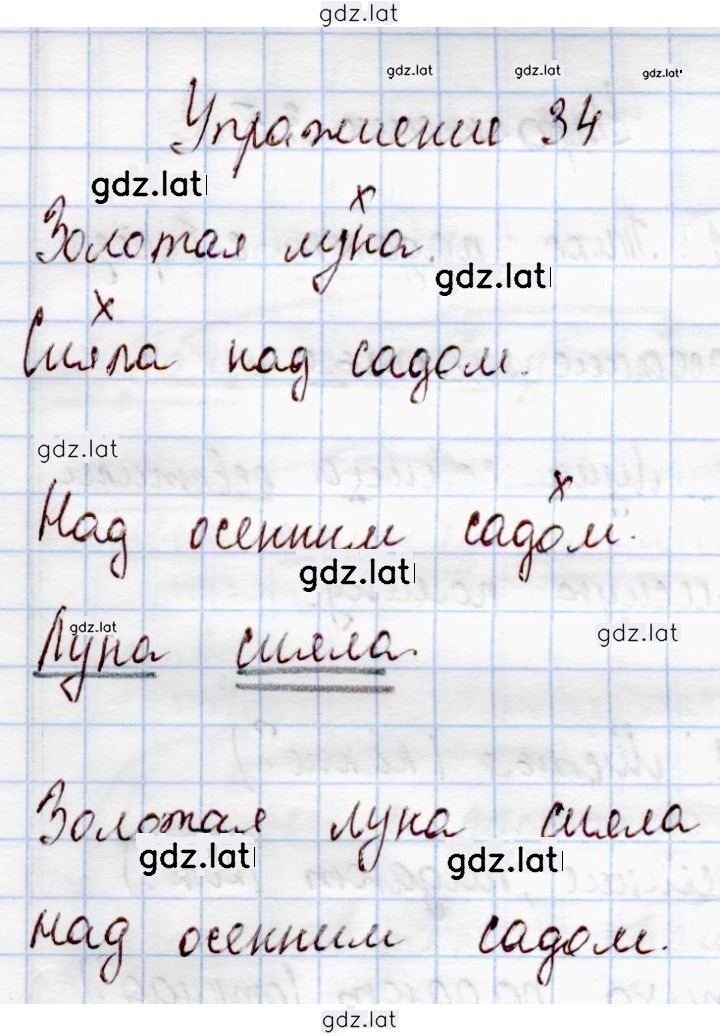 gdz.lat
gdz.lat gdz.lat gdz.lat
Упражнение 34
gdz.lat
х
Золотая луна.
gdz.lat
х
Сияла над садом.
gdz.lat
х
Над осенним садом.
gdz.lat
gdz.lat gdz.lat
Луна сияла.
Золотая луна сияла
gdz.lat gdz.lat
над осенним садом.
gdz.lat